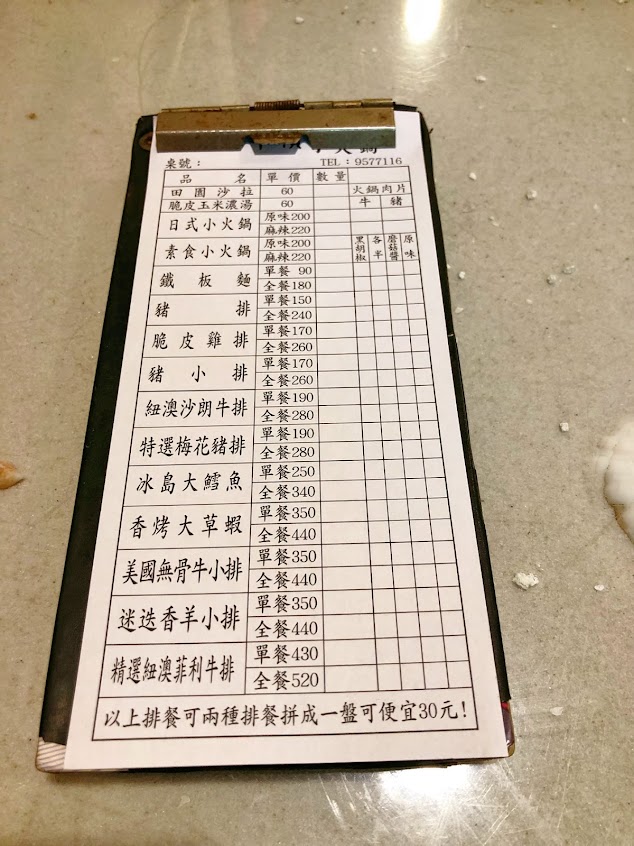 小火鍋
桌號： TEL：9577116
品名 單價 數量
田園沙拉 60 火鍋肉片
脆皮玉米濃湯 60 牛 豬
日式小火鍋 原味200
麻辣220
素食小火鍋 原味200 黑胡椒 各半 蘑菇醬 原味
麻辣220
鐵板麵 單餐 90
全餐180
豬排 單餐150
全餐240
脆皮雞排 單餐170
全餐260
豬小排 單餐170
全餐260
紐澳沙朗牛排 單餐190
全餐280
特選梅花豬排 單餐190
全餐280
冰島大鱈魚 單餐250
全餐340
香烤大草蝦 單餐350
全餐440
美國無骨牛小排 單餐350
全餐440
迷迭香羊小排 單餐350
全餐440
精選紐澳菲利牛排 單餐430
全餐520
以上排餐可兩種排餐拼成一盤可便宜30元!